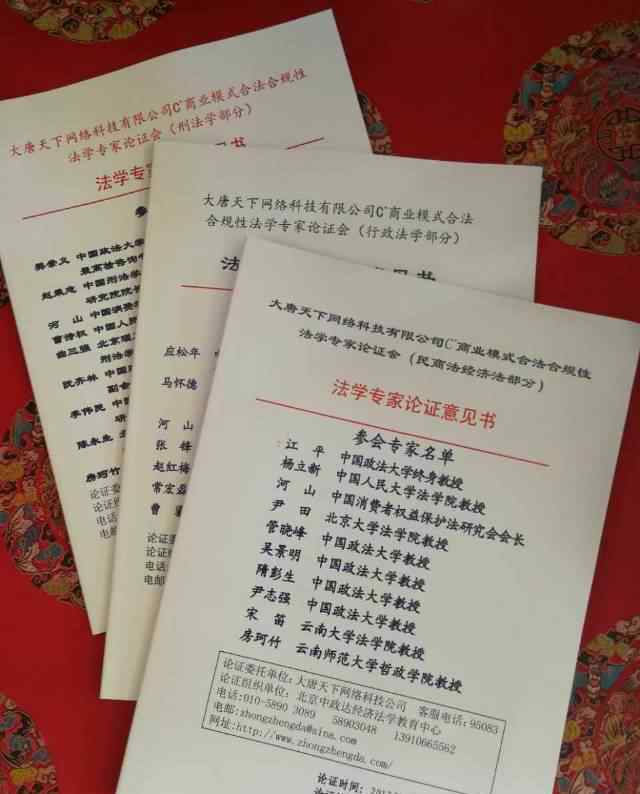 大唐天下网络科技有限公司C⁺商业模式合法合规性
法学专家论证会（刑法学部分）
法学专
樊崇义 中国政法大学
最高检咨询
赵秉志 中国刑法学
研究院院
河山 中国消费
曹诗权 中国人民
曲三强 北京理工
刑法学
阮齐林 中国政
副会
李伟民 中国
研
陈永生
房珂竹
论证委
论证组
电话
电邮
大唐天下网络科技有限公司C⁺商业模式合法
合规性法学专家论证会（行政法学部分）
法 见书
应松年
马怀德
河山
张锋
赵红梅
常宏磊
曹
论证委
论证组
电话
电邮
大唐天下网络科技有限公司C⁺商业模式合法合规性
法学专家论证会（民商法经济法部分）
法学专家论证意见书
参会专家名单
江平 中国政法大学终身教授
杨立新 中国人民大学法学院教授
河山 中国消费者权益保护法研究会会长
尹田 北京大学法学院教授
管晓峰 中国政法大学教授
吴景明 中国政法大学教授
隋彭生 中国政法大学教授
尹志强 中国政法大学教授
宋苗 云南大学法学院教授
房珂竹 云南师范大学哲政学院教授
论证委托单位：大唐天下网络科技公司 客服电话：95083
论证组织单位：北京中政达经济法学教育中心
电话：010-5890 3089 58903048 13910665562
电邮：zhongzhengda@sina.com
网址：http://www.zhongzhengda.com/
论证时间：201